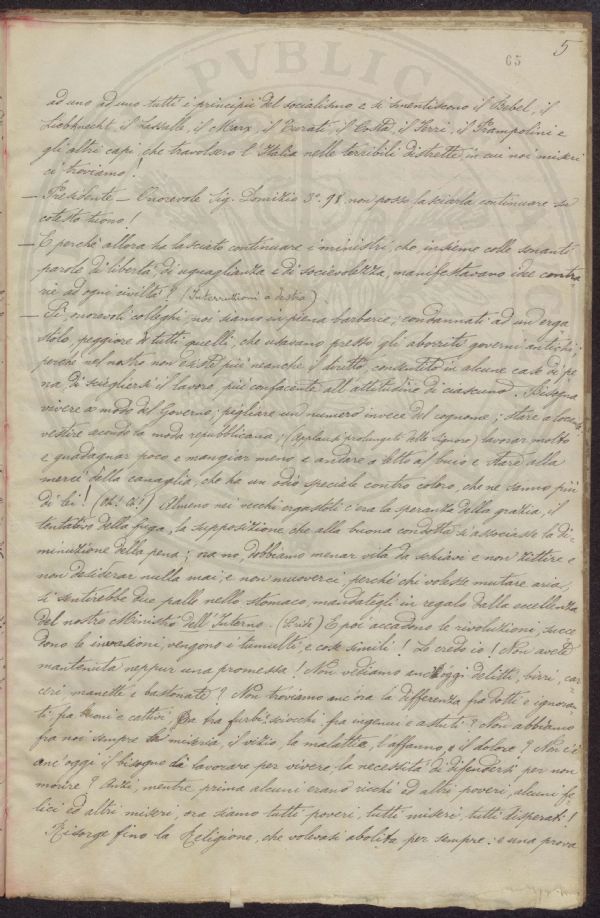 5
65
ad uno ad uno tutti i principii del socialismo e si smentiscono il Bebel, il
Liebknecht, il Lassalle, il Marx, il Turati, il Costa, il Ferri, il Prampolini e
gli altri capi che travolsero l'Italia nelle terribili distrette, in cui noi miseri
ci troviamo!
— Presidente — Onorevole Sig. Domizio 3°. 98 non posso lasciarla continuare su
cotesto tuono!
— E perchè allora ha lasciato continuare i ministri, che insieme colle sonanti
parole di libertà, di uguaglianza e di socievolezza, manifestavano idee contra-
rie ad ogni civiltà? (Interruzioni a destra).
— Sì, onorevoli colleghi, noi siamo in piena barbarie; condannati ad un erga-
stolo, peggiore di tutti quelli, che usavano presso gli aborriti governi antichi;
perchè nel nostro non esiste più neanche il diritto, consentito in alcune case di pe-
na, di scegliersi il lavoro più confacente all'attitudine di ciascuno. Bisogna
vivere a modo del Governo; pigliare un numero invece del cognome; stare a
vestire secondo la moda repubblicana; (applausi prolungati delle signore) lavorar molto
e guadagnar poco e mangiar meno e andare a letto al buio e stare alla
mercè della canaglia, che ha un odio speciale contro coloro, che ne sanno più
di lei! (oh! oh!) Almeno nei vecchi ergastoli c'era la speranza della grazia, il
tentativo della fuga, la supposizione che alla buona condotta si associasse la di-
minuzione della pena; ora no, dobbiamo menar vita da schiavi e non zittire e
non desiderar nulla mai, e non muoverci, perchè chi volesse mutare aria,
si sentirebbe due palle nello stomaco, mandategli in regalo dalla eccellenza
del nostro Ministro dell'Interno. (Risa) E poi accadono le rivoluzioni, succe-
dono le invasioni, vengono i tumulti, e cose simili! Lo credo io! Non avete
mantenuta neppur una promessa! Non vediamo anch'oggi delitti, birri, car-
ceri, manette e bastonate? Non troviamo ancora la differenza fra dotti e ignoran-
ti, fra buoni e cattivi, fra furbi e sciocchi, fra ingenui e astuti? Non abbiamo
fra noi sempre la miseria, il vizio, la malattia, l'affanno, e il dolore? Non c'è
anc'oggi il bisogno di lavorare per vivere, la necessità di difendersi per non
morire? Anzi, mentre prima alcuni erano ricchi ed altri poveri, alcuni fe-
lici ed altri miseri, ora siamo tutti poveri, tutti miseri, tutti disperati!
Risorge fino la Religione, che volevasi abolita per sempre: e una prova